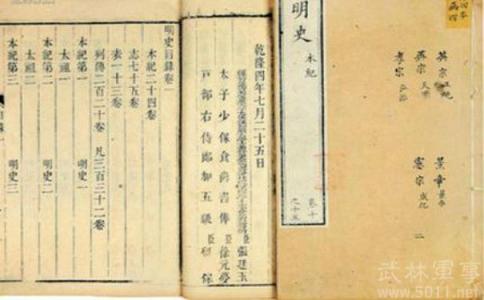 明史
本紀
卷十
之十五
英宗 正統
英宗 天順
孝宗 弘治
景帝 景泰
憲宗 成化 二
乾隆四年七月二十五日
太子少保食尚書俸臣徐元夢
戶部右侍郎
張廷玉
明史目錄卷一
本紀二十四卷
志七十五卷
表一十三卷
列傳二百二十卷 凡三百三十二卷
本紀第一
太祖一 明史一
本紀第二
太祖二 明史二
本紀第三
明史三
武林軍事
www.5011.net